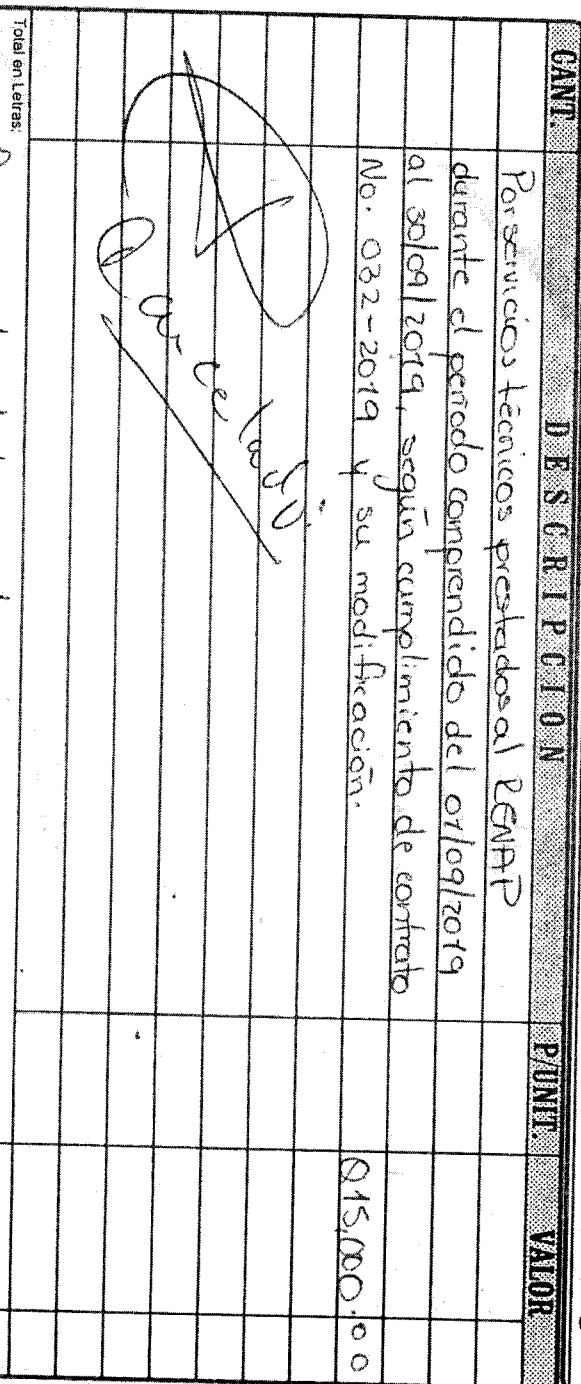 CANT. DESCRIPCION P/UNIT. VALOR
Por servicios técnicos prestados al RENAP
durante el período comprendido del 01/09/2019
al 30/09/2019, según cumplimiento de contrato
No. 032-2019 y su modificación. Q15,000.00
Cancelado
Total en Letras: